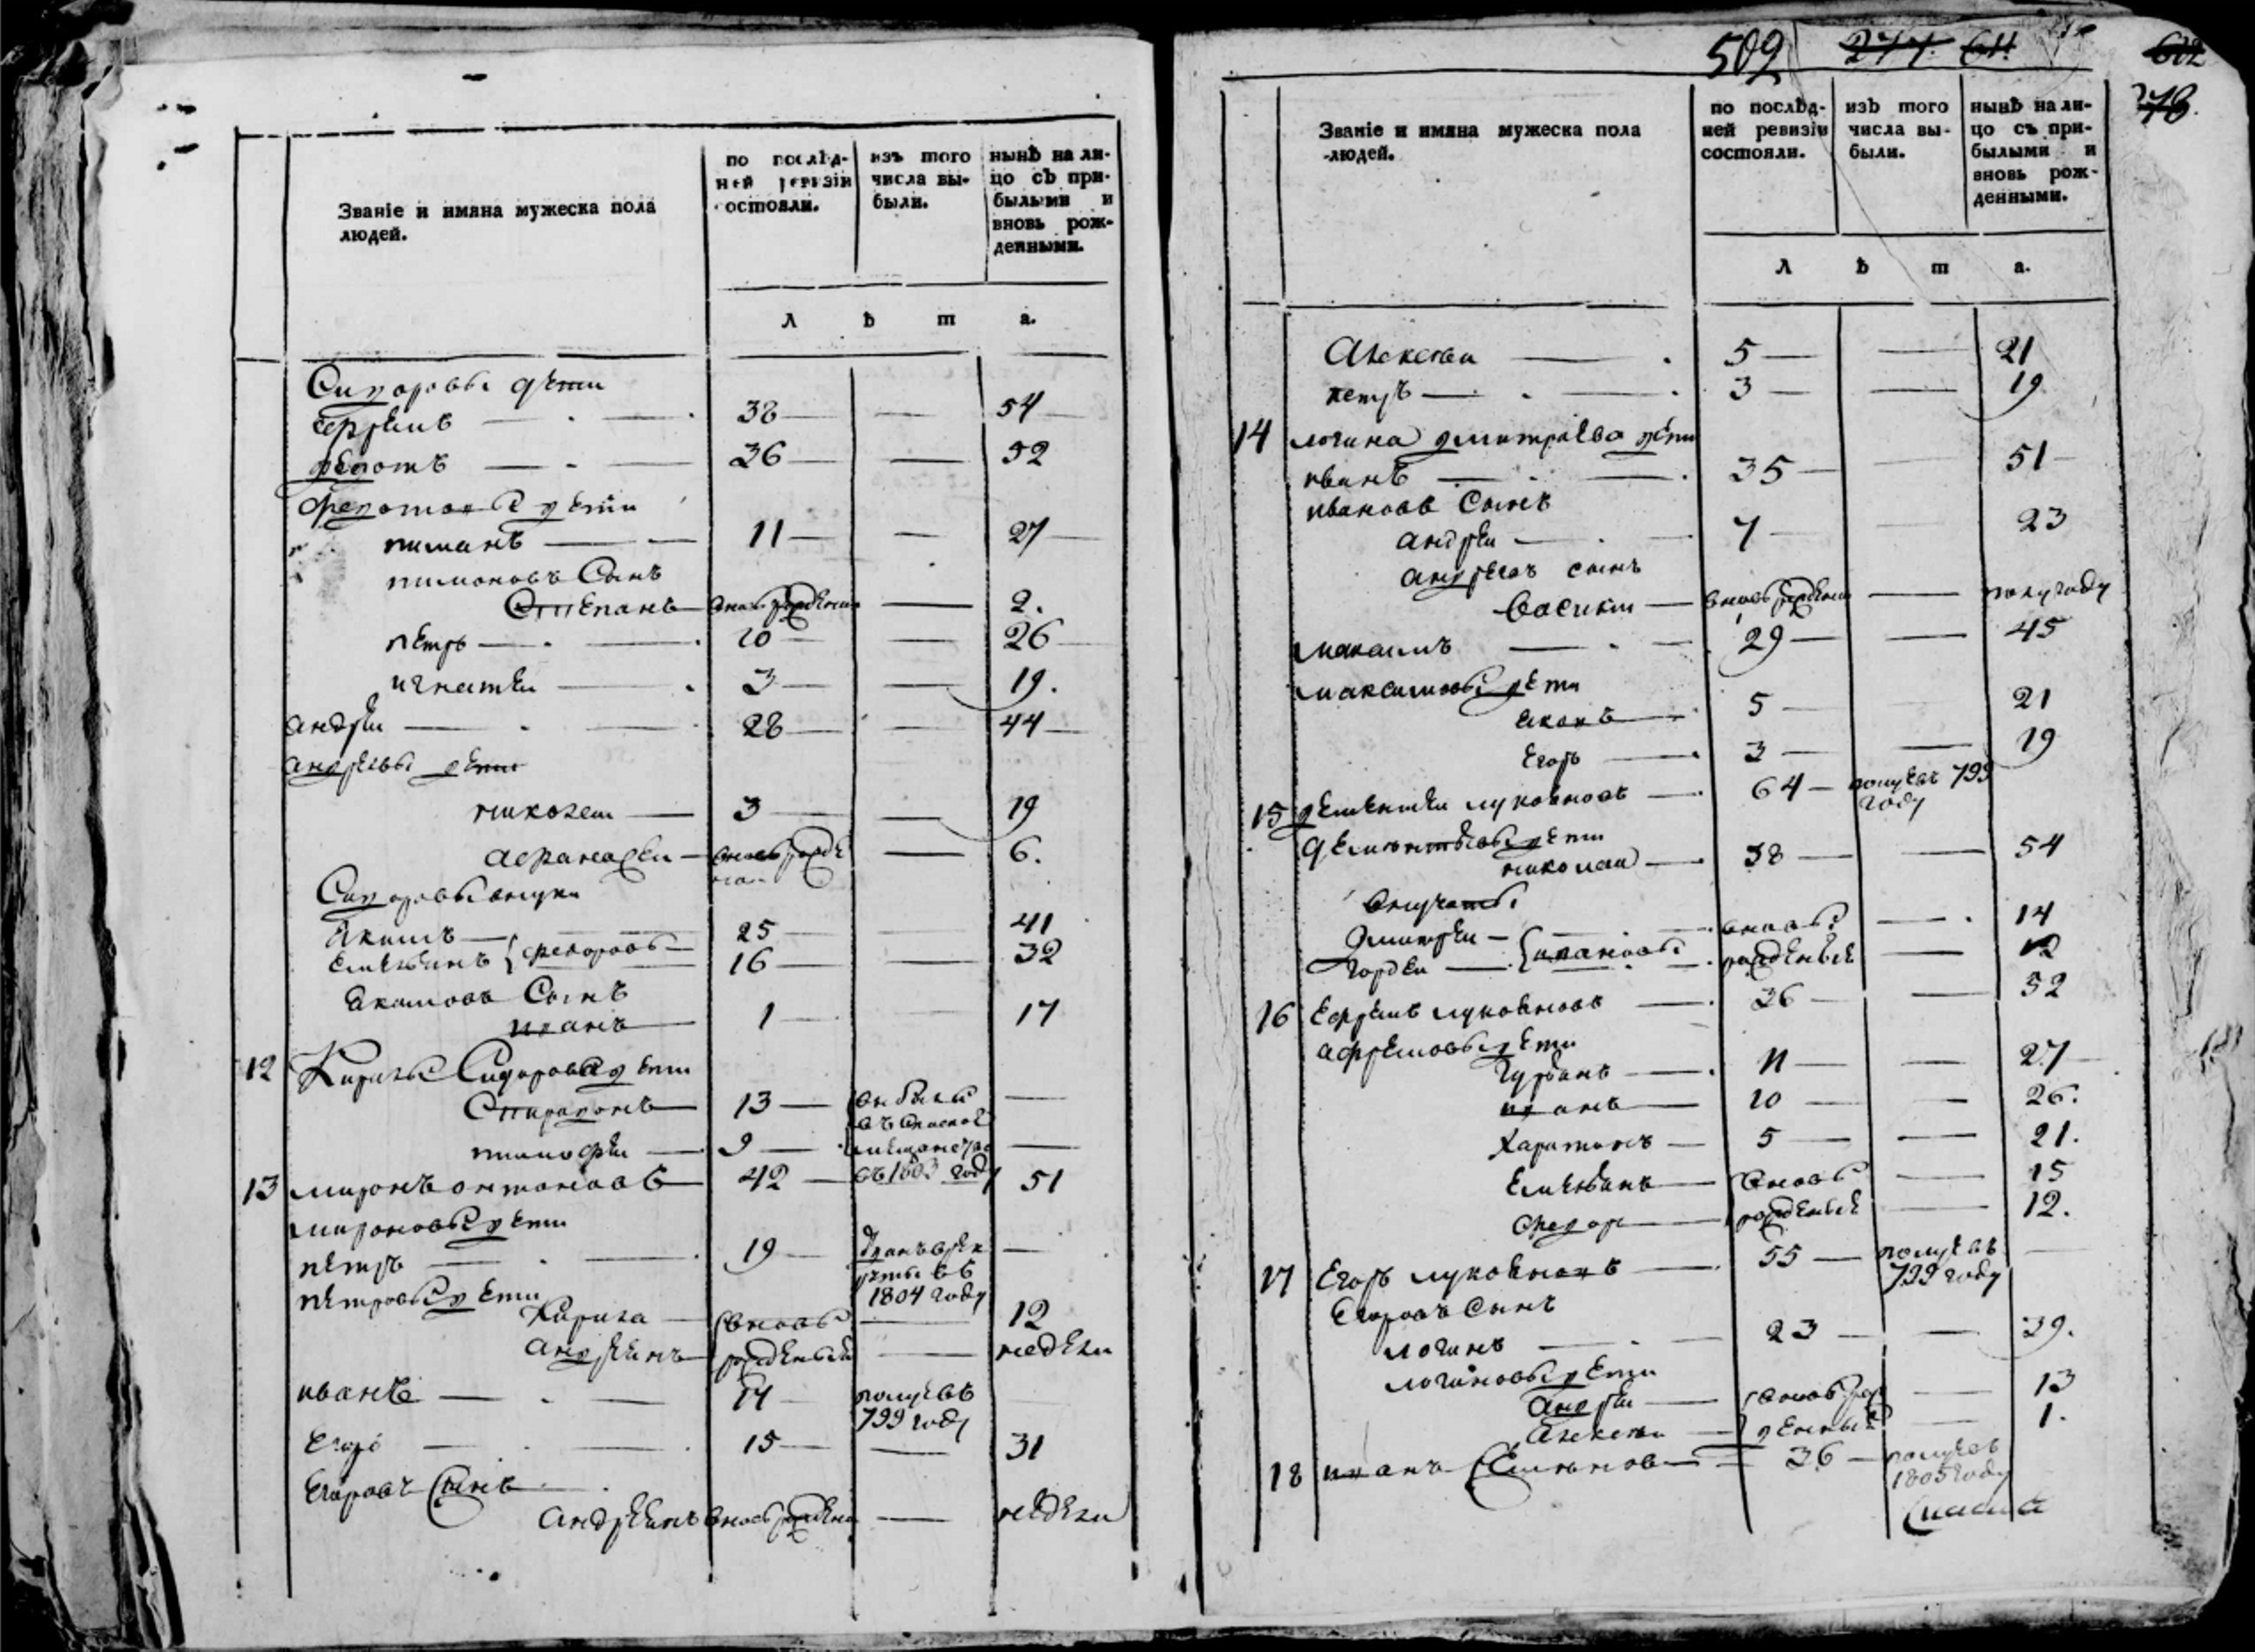 Званіе и имяна мужеска пола
людей.
по послѣд-
ней ревизіи
состояли.
изъ того
числа вы-
были.
нынѣ на ли-
цо съ при-
былыми и
вновь рож-
денными.
л ѣ т а.
Сидоровы дети
ефремъ 38 54
федотъ 36 52
федотовы дети
пиманъ 11 27
пимоновъ Сынъ
Степанъ вновь рожденны 2.
петръ 10 26
игнатеи 3 19.
андреи 28 44
андреевы дети
николаи 3 19
афанасеи вновь рожде 6.
Сидоровы внуки
Акимъ 25 41
емельянъ федоровы 16 32
Екимовъ Сынъ
иванъ 1 17
12 Кирилы Сидоровы дети
Спиридонъ 13 выбыли
въ
тимофеи 9
въ 1803 году
13 миронъ антоновъ 42 51
мироновы дети
петръ 19 вданъ в рек
руты въ
1804 году
петровы дети
Кирила вновь 12
андреянъ рожденыя недели
иванъ 14 помре въ
799 году
егоръ 15 31
егоровъ Сынъ
андреянъ вновь рождены недели
509 277. 64 602
Званіе и имяна мужеска пола
людей.
по послѣд-
ней ревизіи
состояли.
изъ того
числа вы-
были.
нынѣ на ли-
цо съ при-
былыми и
вновь рож-
денными.
л ѣ т а.
Алексеи 5 21
петръ 3 19
14 логина дмитриева дети
иванъ 35 51
ивановъ Сынъ
андреи 7 23
андреевъ сынъ
василеи вновь рождены полугоду
максимъ 29 45
максимовы дети
яковъ 5 21
егоръ 3 19
15 дементеи лукояновъ 64 помре въ 799
году
дементьевы дети
николаи 38 54
внучаты
дмитреи ивановы вновь 14
гордеи рожденыя 12
16 ефремъ лукояновъ 36 52
афремовы дети
гурьянъ 11 27
иванъ 10 26.
харитонъ 5 21.
емельянъ вновь 15
федоръ рожденыя 12.
17 егоръ лукояновъ 55 помре въ
799 году
егоровъ сынъ
логинъ 23 39.
логиновы дети
андреи вновь рож 13
алексеи денныя 1.
18 иванъ Семеновъ 36 помре въ
1805 году